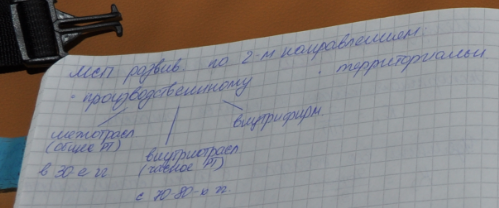 МСП развив. по 2-м направлениям
· производственному · территориальн
межотрасл внутриотрасл внутрифирм
(общее РТ) (частное РТ)
в 30-е гг с 70-80-х гг.